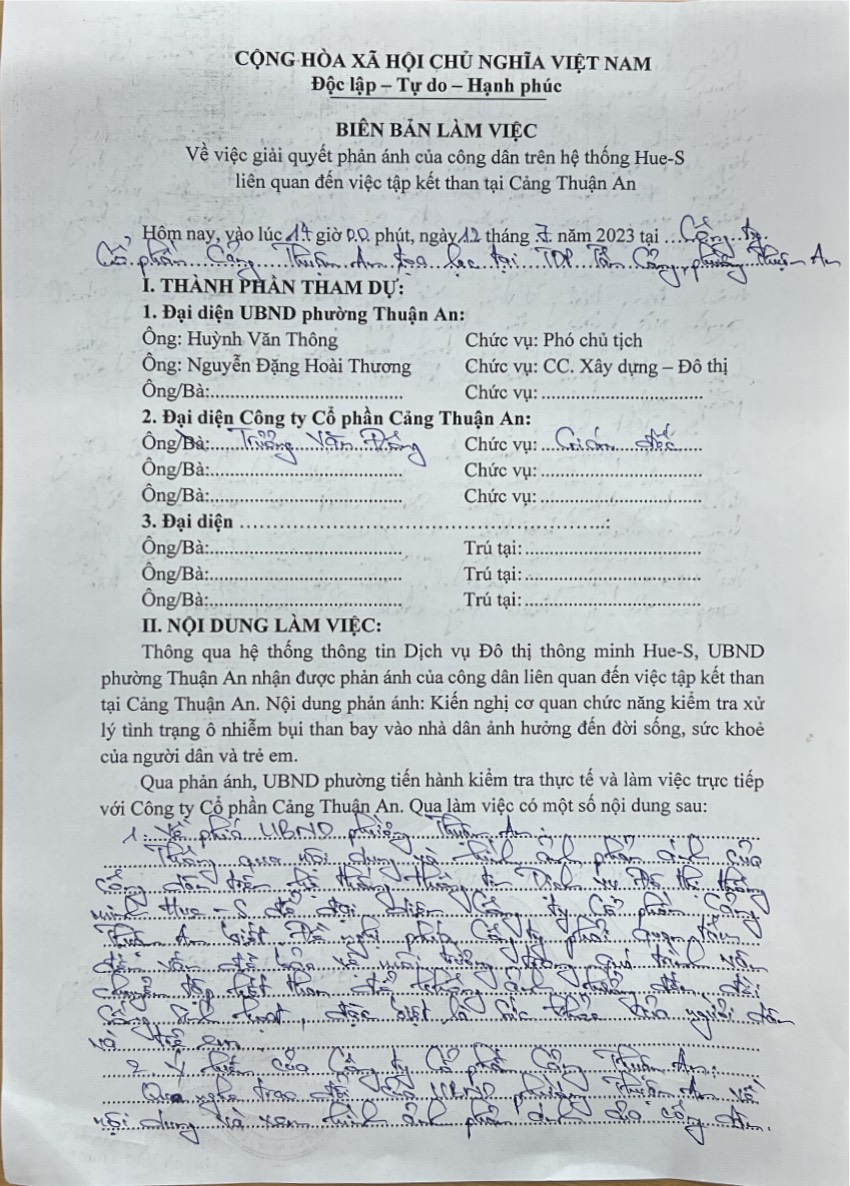 CỘNG HÒA XÃ HỘI CHỦ NGHĨA VIỆT NAM
Độc lập – Tự do – Hạnh phúc
BIÊN BẢN LÀM VIỆC
Về việc giải quyết phản ánh của công dân trên hệ thống Hue-S
liên quan đến việc tập kết than tại Cảng Thuận An
Hôm nay, vào lúc 14 giờ 00 phút, ngày 12 tháng 7 năm 2023 tại ...Công ty
Cổ phần Cảng Thuận An tọa lạc tại TDP Tân Cảng, phường Thuận An
I. THÀNH PHẦN THAM DỰ:
1. Đại diện UBND phường Thuận An:
Ông: Huỳnh Văn Thông Chức vụ: Phó chủ tịch
Ông: Nguyễn Đặng Hoài Thương Chức vụ: CC. Xây dựng – Đô thị
Ông/Bà:.................................... Chức vụ: ..............................
2. Đại diện Công ty Cổ phần Cảng Thuận An:
Ông/Bà: Trương Văn Chức vụ: Giám đốc
Ông/Bà:.................................... Chức vụ: ..............................
Ông/Bà:.................................... Chức vụ: ..............................
3. Đại diện ……………………………………………….:
Ông/Bà:.................................... Trú tại: .................................
Ông/Bà:.................................... Trú tại: .................................
Ông/Bà:.................................... Trú tại: .................................
II. NỘI DUNG LÀM VIỆC:
Thông qua hệ thống thông tin Dịch vụ Đô thị thông minh Hue-S, UBND
phường Thuận An nhận được phản ánh của công dân liên quan đến việc tập kết than
tại Cảng Thuận An. Nội dung phản ánh: Kiến nghị cơ quan chức năng kiểm tra xử
lý tình trạng ô nhiễm bụi than bay vào nhà dân ảnh hưởng đến đời sống, sức khoẻ
của người dân và trẻ em.
Qua phản ánh, UBND phường tiến hành kiểm tra thực tế và làm việc trực tiếp
với Công ty Cổ phần Cảng Thuận An. Qua làm việc có một số nội dung sau:
1. Về phía UBND phường Thuận An:
Thông qua nội dung và hình ảnh phản ánh của
công dân trên hệ thống thông tin Dịch vụ Đô thị thông
minh Hue-S để đại diện Công ty Cổ phần Cảng
Thuận An biết. Đề nghị phía Công ty phải quan tâm
đến vấn đề bảo vệ môi trường trong quá trình vận
chuyển tập kết than để không ảnh hưởng đến đời
sống sinh hoạt, đặc biệt là sức khỏe của người dân
và trẻ em.
2. Ý kiến của Công ty Cổ phần Cảng Thuận An:
Qua nghe trao đổi của UBND phường Thuận An về
nội dung và xem hình ảnh phản ánh của công dân.